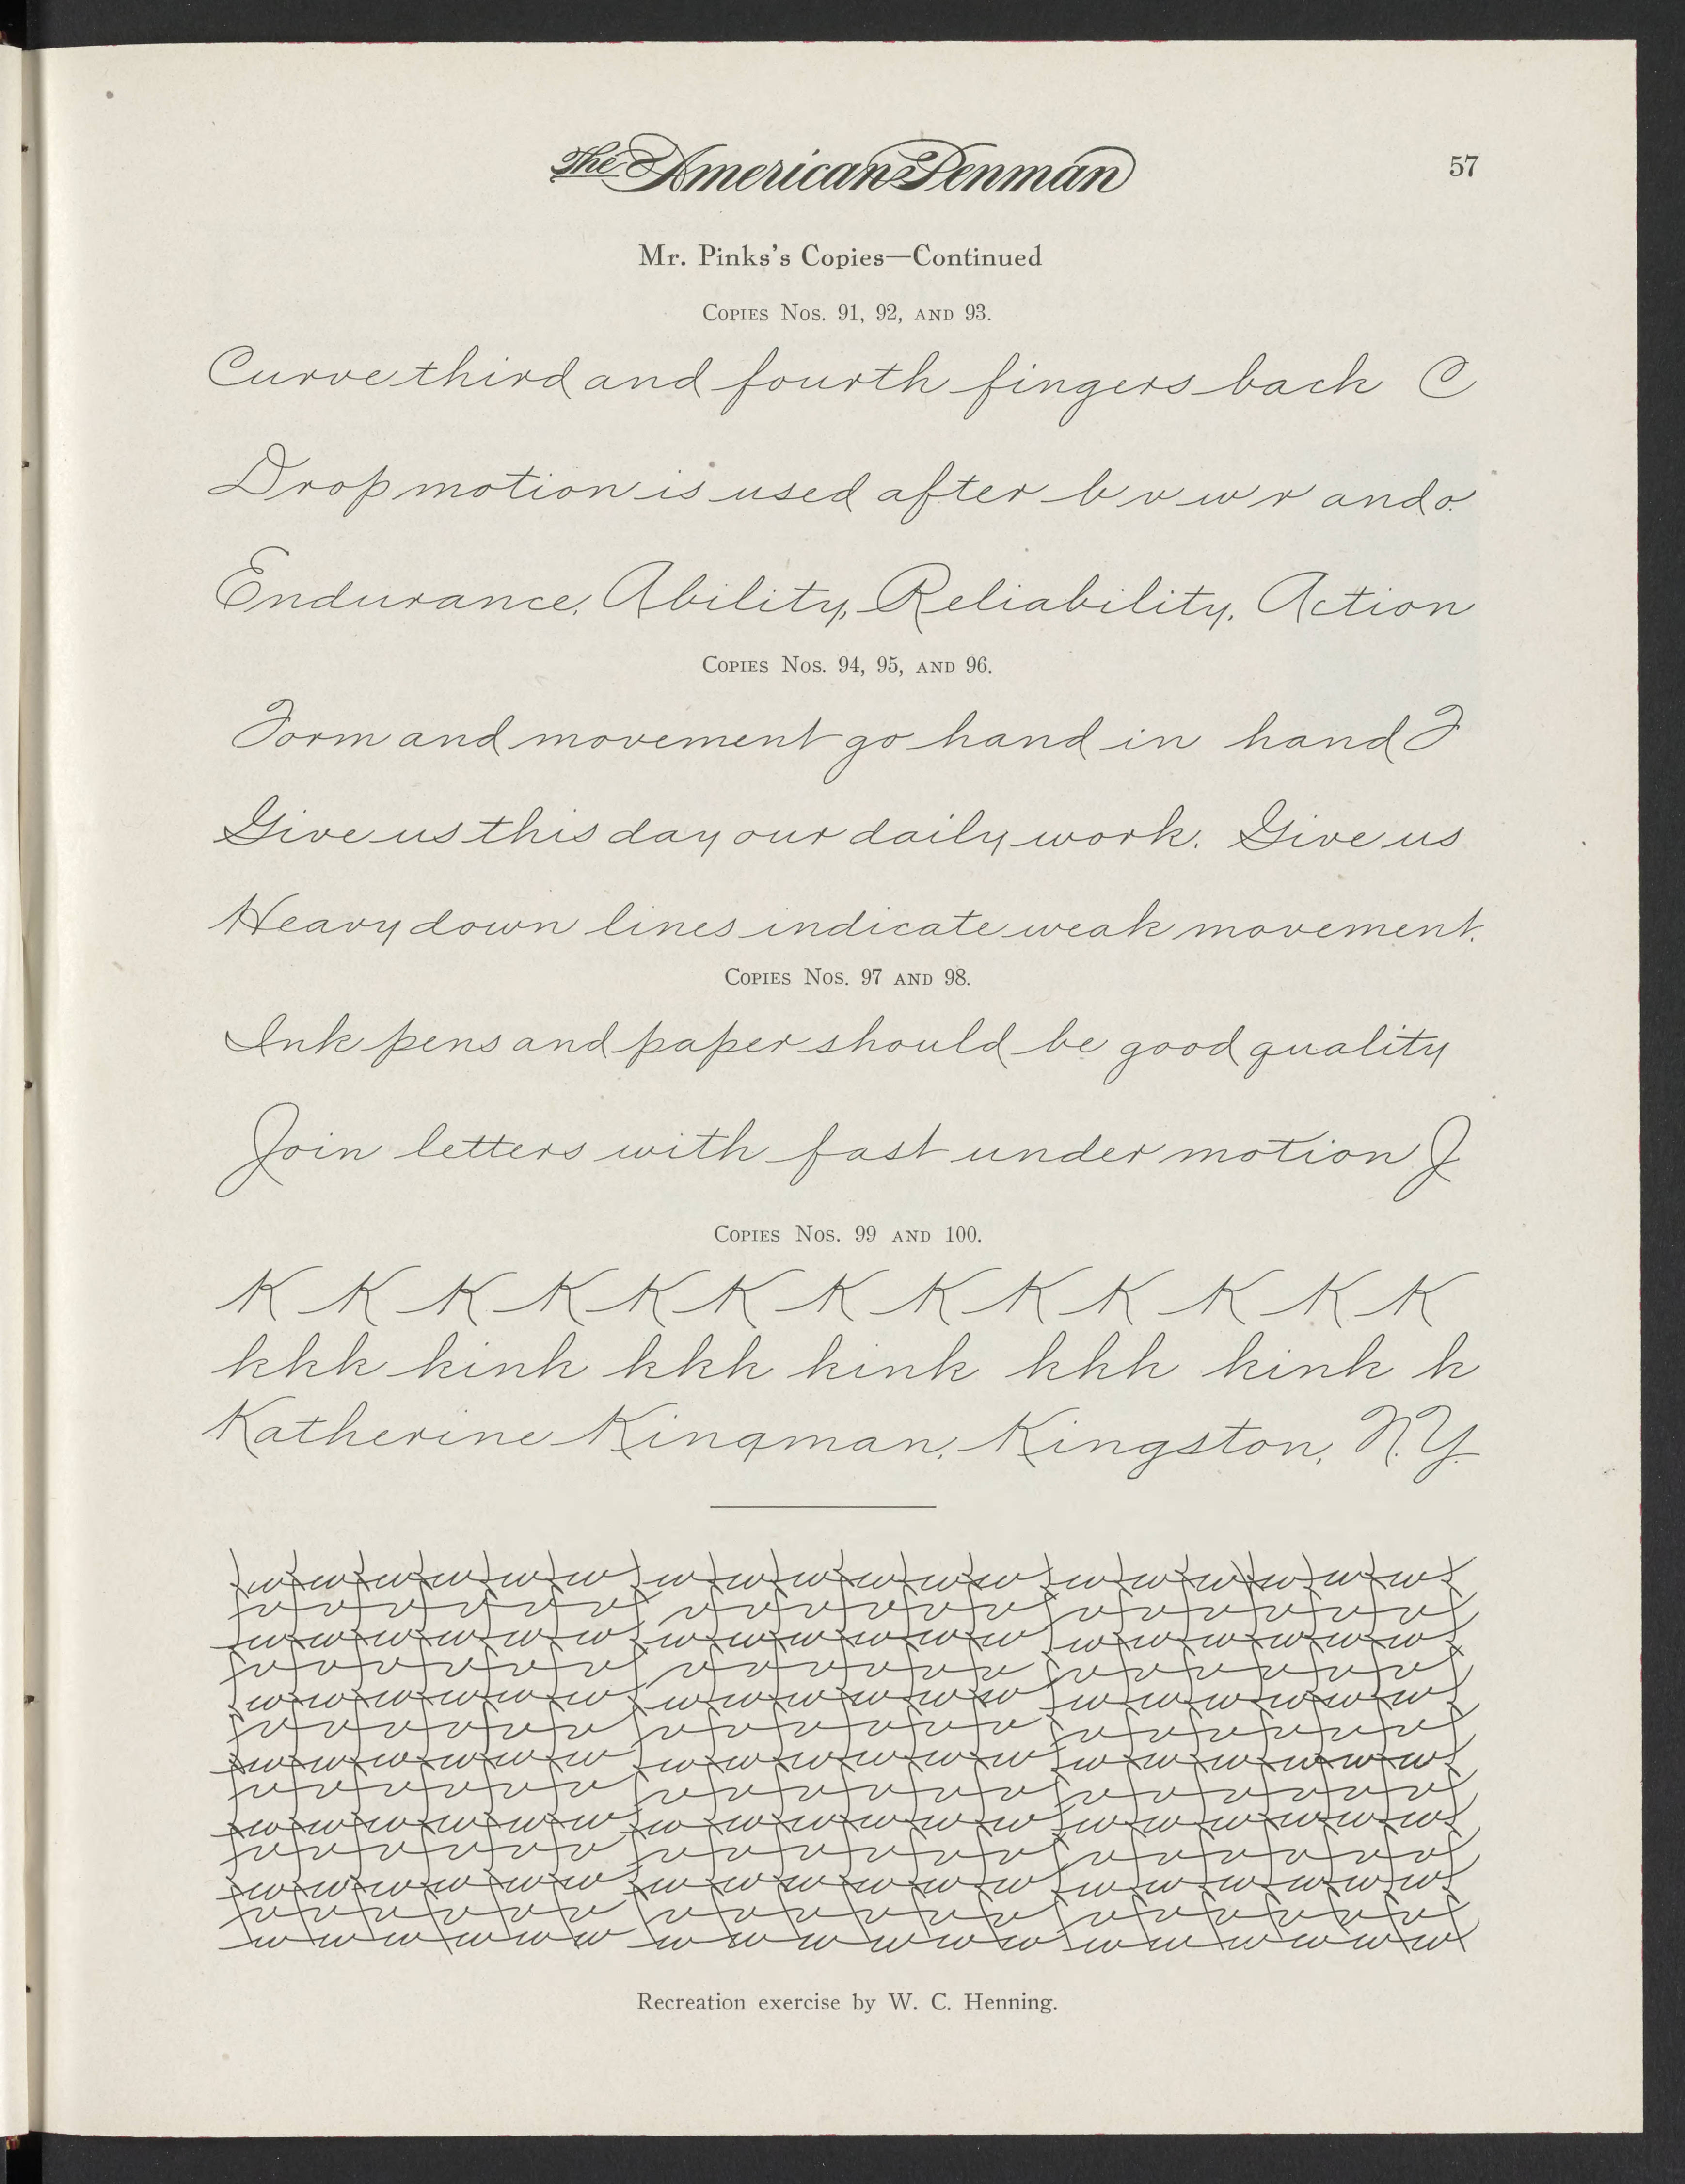 The American Penman
57
Mr. Pinks's Copies—Continued
Copies Nos. 91, 92, and 93.
Curve third and fourth fingers back C
Drop motion is used after b v w r and o.
Endurance, Ability, Reliability, Action
Copies Nos. 94, 95, and 96.
Form and movement go hand in hand F
Give us this day our daily work. Give us
Heavy down lines indicate weak movement.
Copies Nos. 97 and 98.
Ink pens and paper should be good quality
Join letters with fast under motion J
Copies Nos. 99 and 100.
K K K K K K K K K K K K K
kkk kink kkk kink kkk kink k
Katherine Kingman, Kingston, N.Y.
Recreation exercise by W. C. Henning.